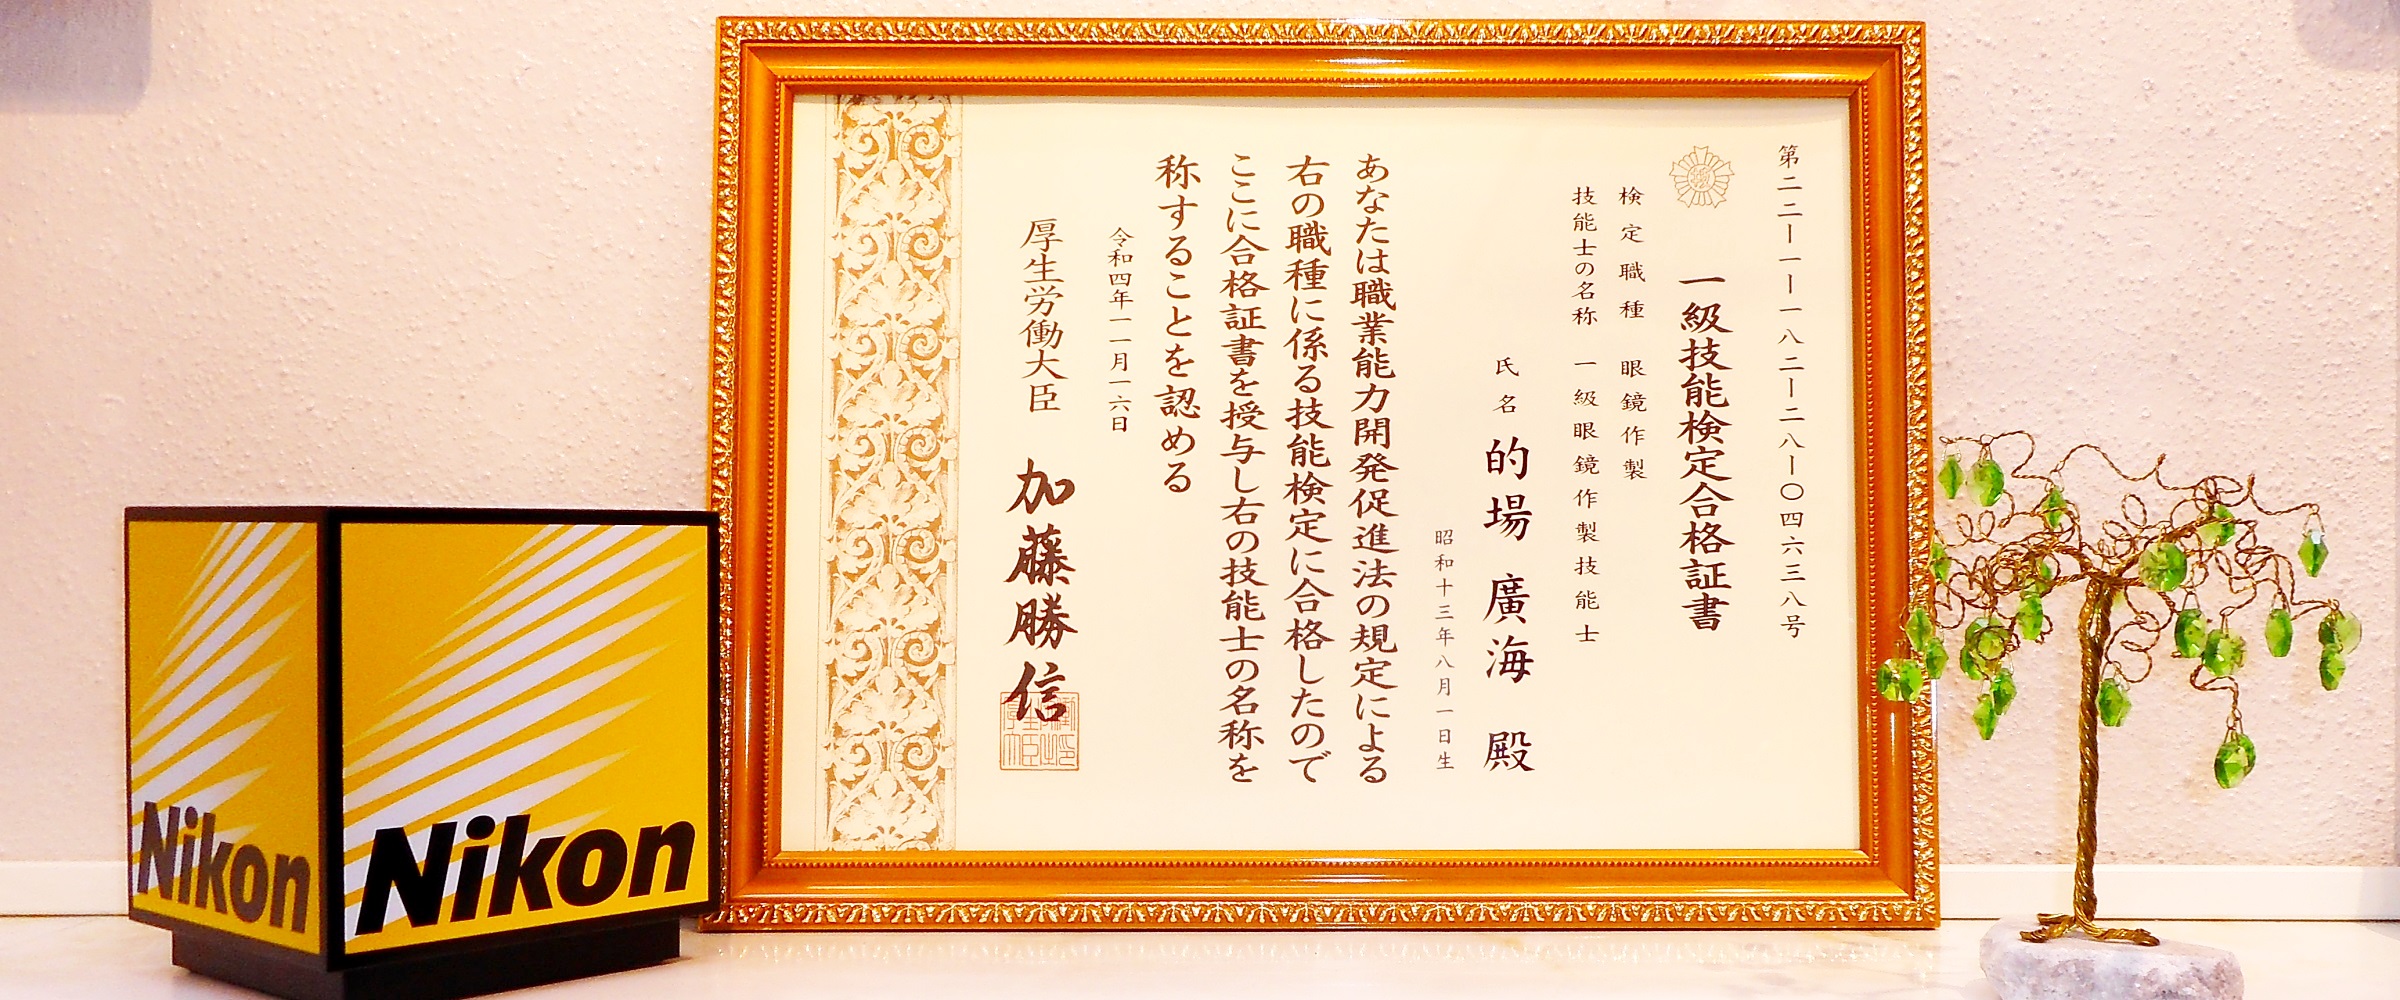 第二二ー一ー一八二ー二八ー〇四六三八号
一級技能検定合格証書
検定職種 眼鏡作製
技能士の名称 一級眼鏡作製技能士
氏名 的場 廣海 殿
昭和十三年八月一日生
あなたは職業能力開発促進法の規定による
右の職種に係る技能検定に合格したので
ここに合格証書を授与し右の技能士の名称を
称することを認める
令和四年一一月一六日
厚生労働大臣 加藤勝信
Nikon
Nikon